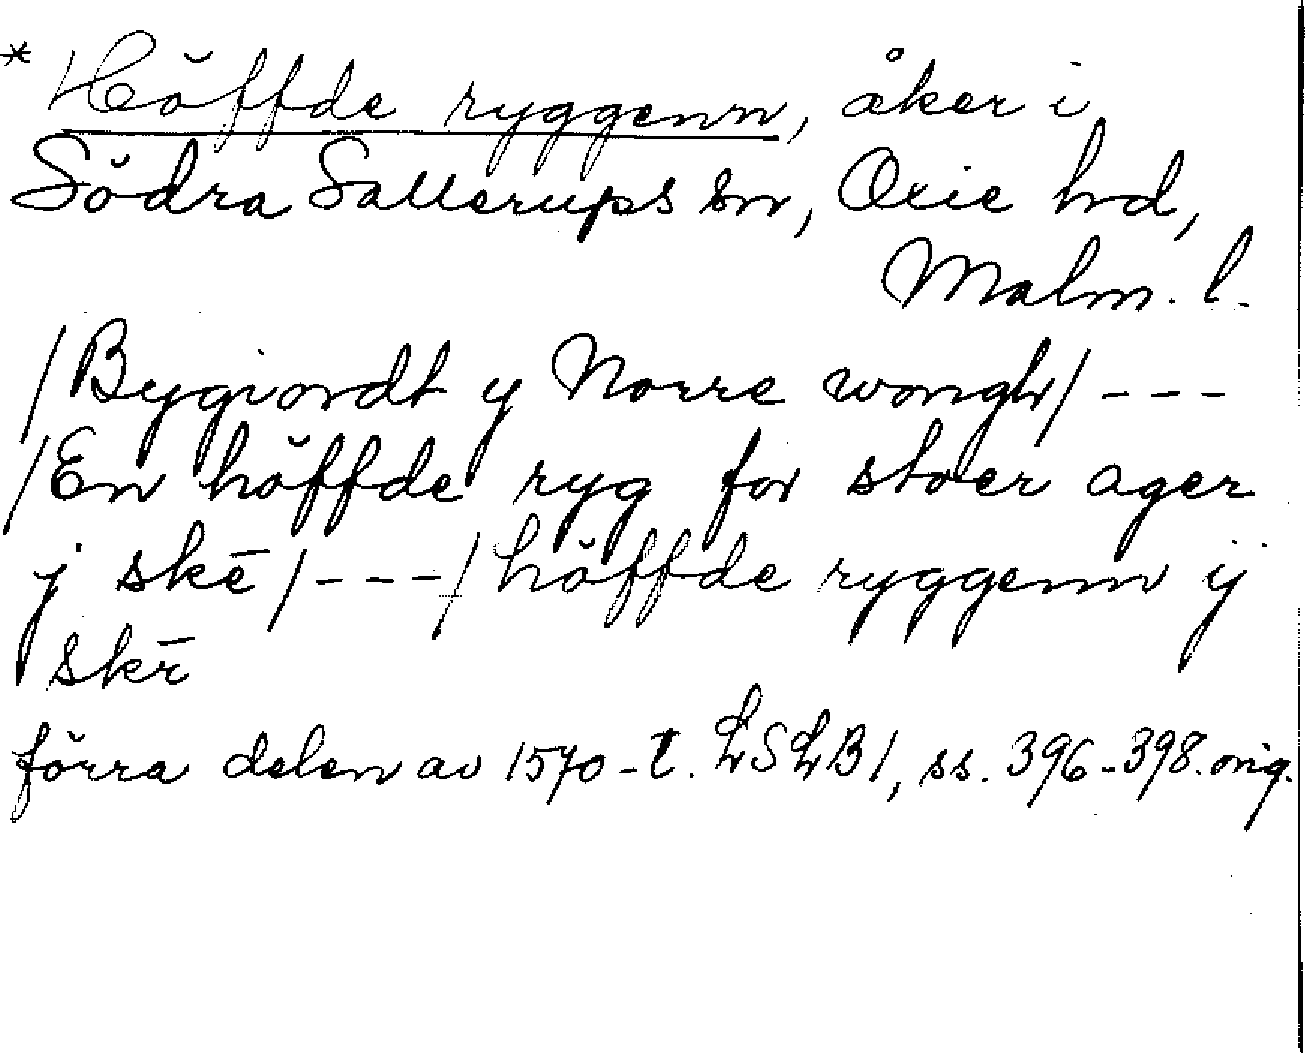 * Höffde ryggenn, åker i
Södra Sallerups sn, Oxie hd,
Malm. l.
/Bygiordt y Norre wongh/ ---
/En höffde ryg for stoer ager
j skē/ ---/höffde ryggenn ij
skē
förra delen av 1570-t. LSLB1, ss. 396-398. orig.